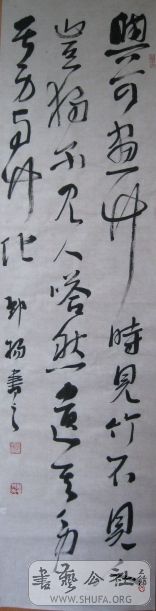 與可畫竹時見竹不見人
豈獨不見人嗒然遺其身
其身與竹化 揚書之
書藝公社
WWW.SHUFA.ORG